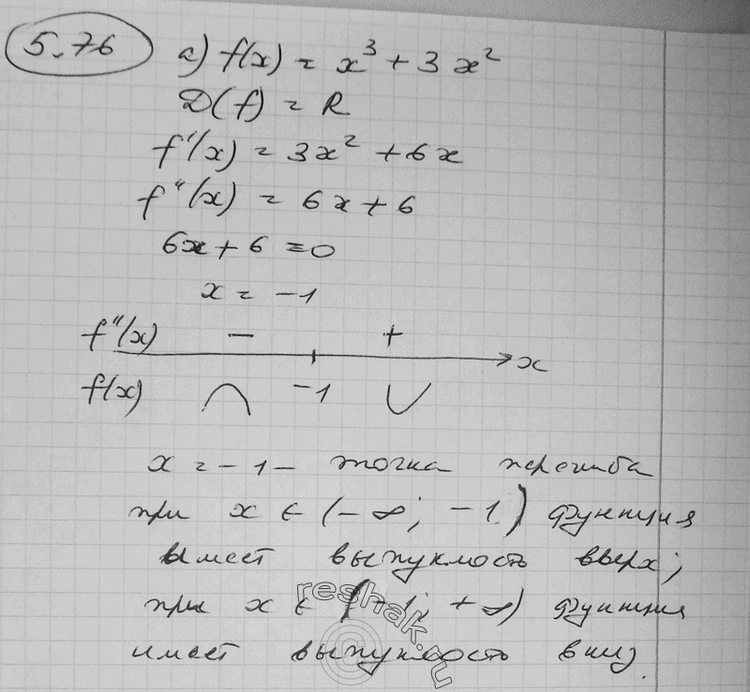 5.76 a) f(x) = x³ + 3x²
D(f) = R
f'(x) = 3x² + 6x
f''(x) = 6x + 6
6x + 6 = 0
x = -1
f''(x) − +
x
f(x) ⌒ -1 ∪
x = -1 - точка перегиба
при x ∈ (-∞; -1) функция
имеет выпуклость вверх;
при x ∈ (-1; +∞) функция
имеет выпуклость вниз.
reshak.ru